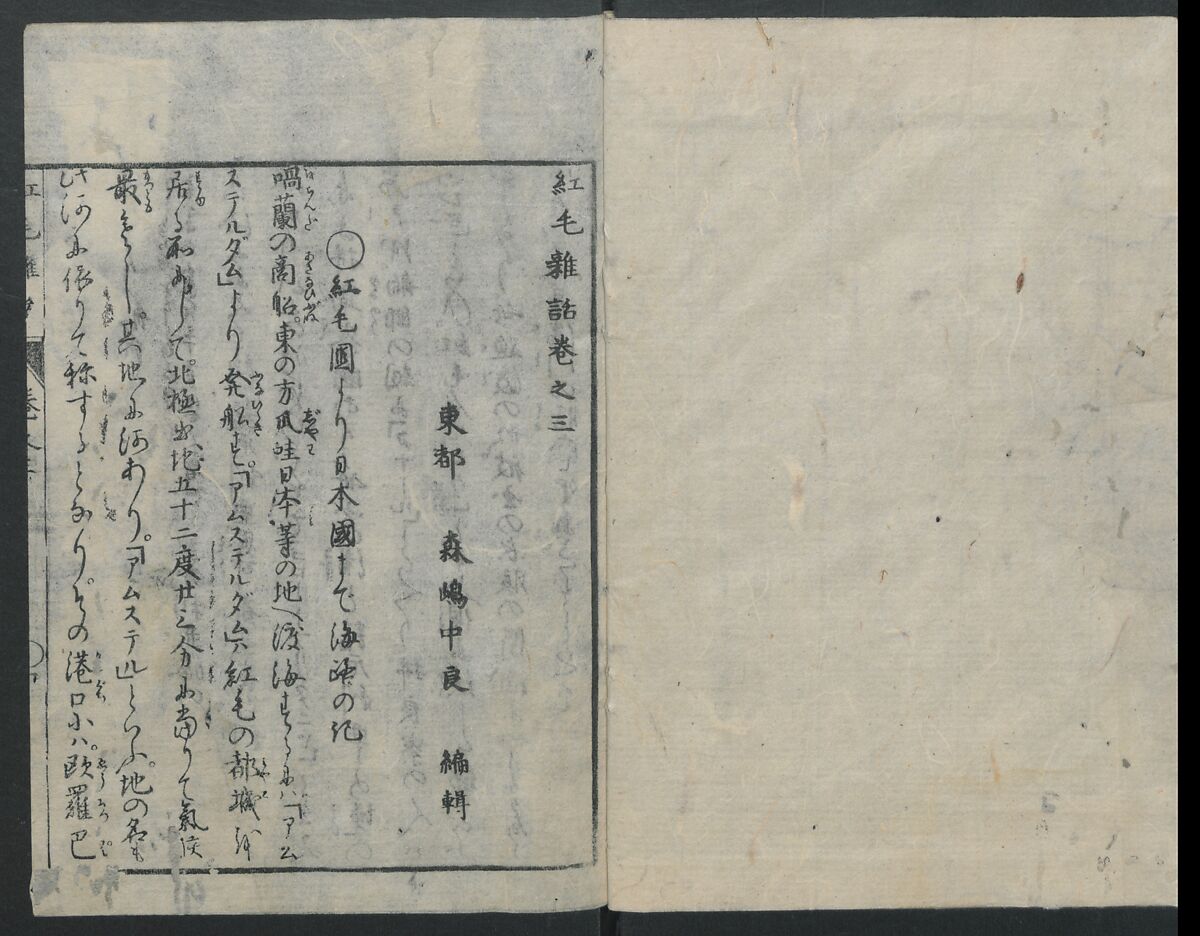 紅毛雜話巻之三
東都 森嶋中良 編輯
○紅毛國より日本國まで海路の記
喎蘭の商船。東の方爪哇日本等の地へ渡海するには「アム
ステルダム」より発船す。「アムステルダム」ハ紅毛の都城
居る所にして。北極出地五十二度廿三分に當りて氣候
最も 其地に河あり。「アムステル」といふ。地の名も
此河に依りて称するとなり。その港口にハ。欧羅巴